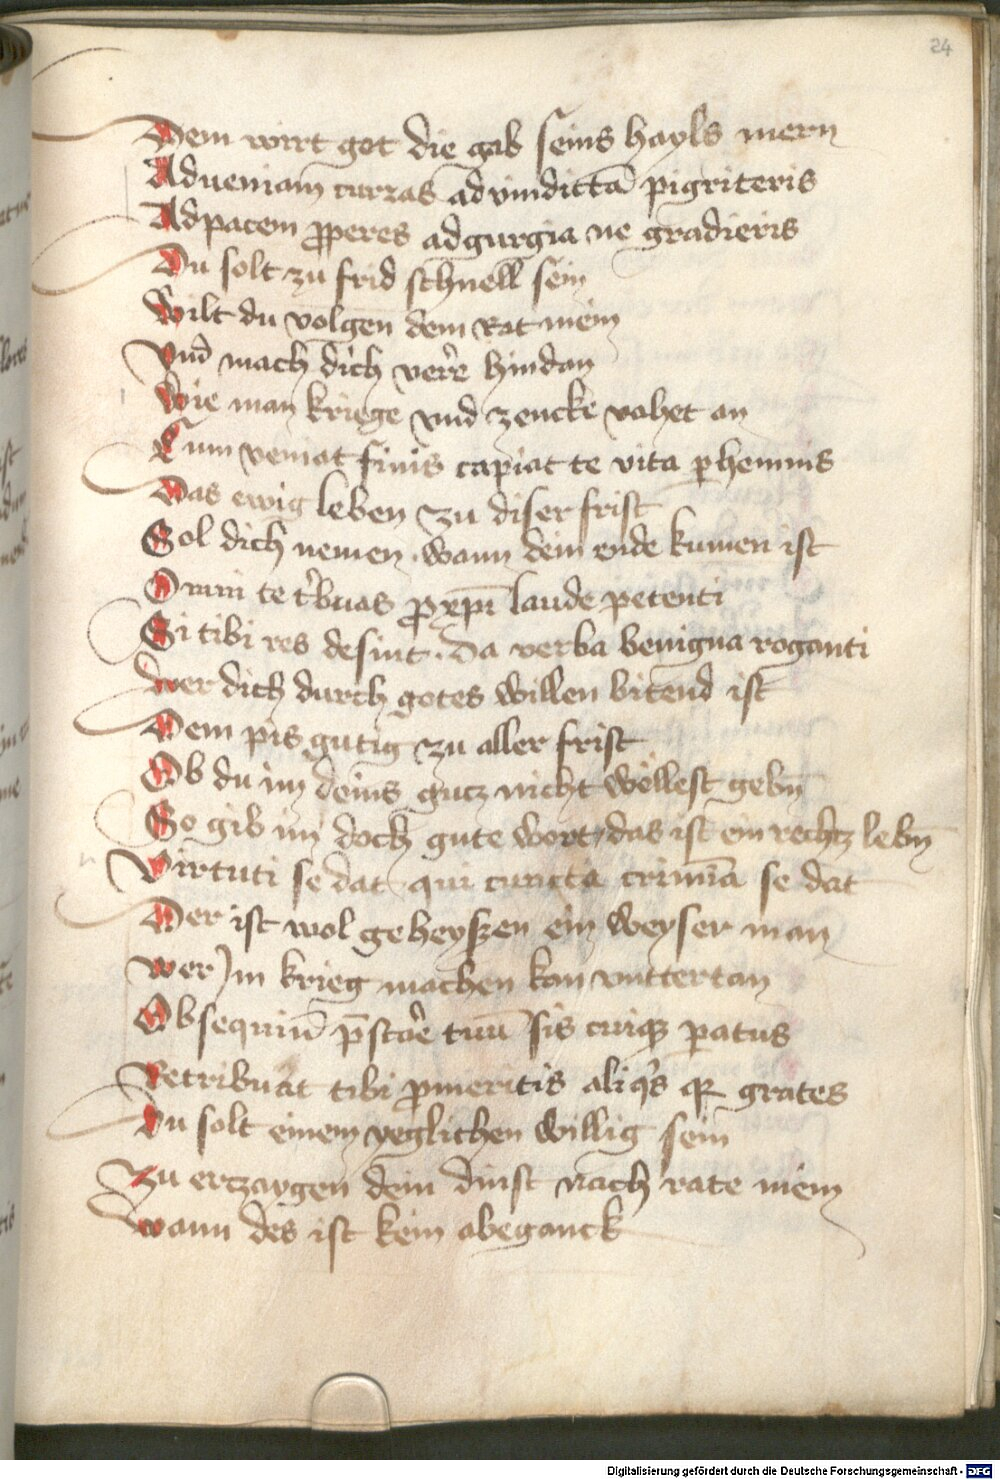 24
Dem wirt got die gab seins hayls mern
Adueniam curras ad vindictā pigriteris
Ad pacem ꝓperes ad gurgia ne gradieris
Du solt zu frid schnell sein
Wilt du volgen dem Rat mein
Vnd mach dich verre hindan
Wie man kriege vnd zencke vahet an
Cum veniat finis capiat te vita ꝑhennis
Das ewig leben zu diser frist
Sol dich nemen . wann dein ende kumen ist
Omni te tribuas ꝓ xp̄i laude petenti
Si tibi res desint . Da verba benigna roganti
Wer dich durch gotes willen bitend ist
Dem pis gutig zu aller frist
Ob du im deins gucz nicht wellest gebn̄
So gib im doch gute wort das ist ein rechtz lebn̄
Virtuti se dat qui cuncta crimīa se dat
Der ist wol geheyszen ein weyser man
Wer Im krieg machen kan vnttertan
Obsequiū p̄stare tuū sis cuiqꝫ ꝑatus
Retribuat tibi ꝓ meritis aliqs qꝛ grates
Du solt einem yeglichen willig sein
Zu erczaygen dein dinst nach rate mein
Wann des ist kein abeganck
Digitalisierung gefördert durch die Deutsche Forschungsgemeinschaft - DFG